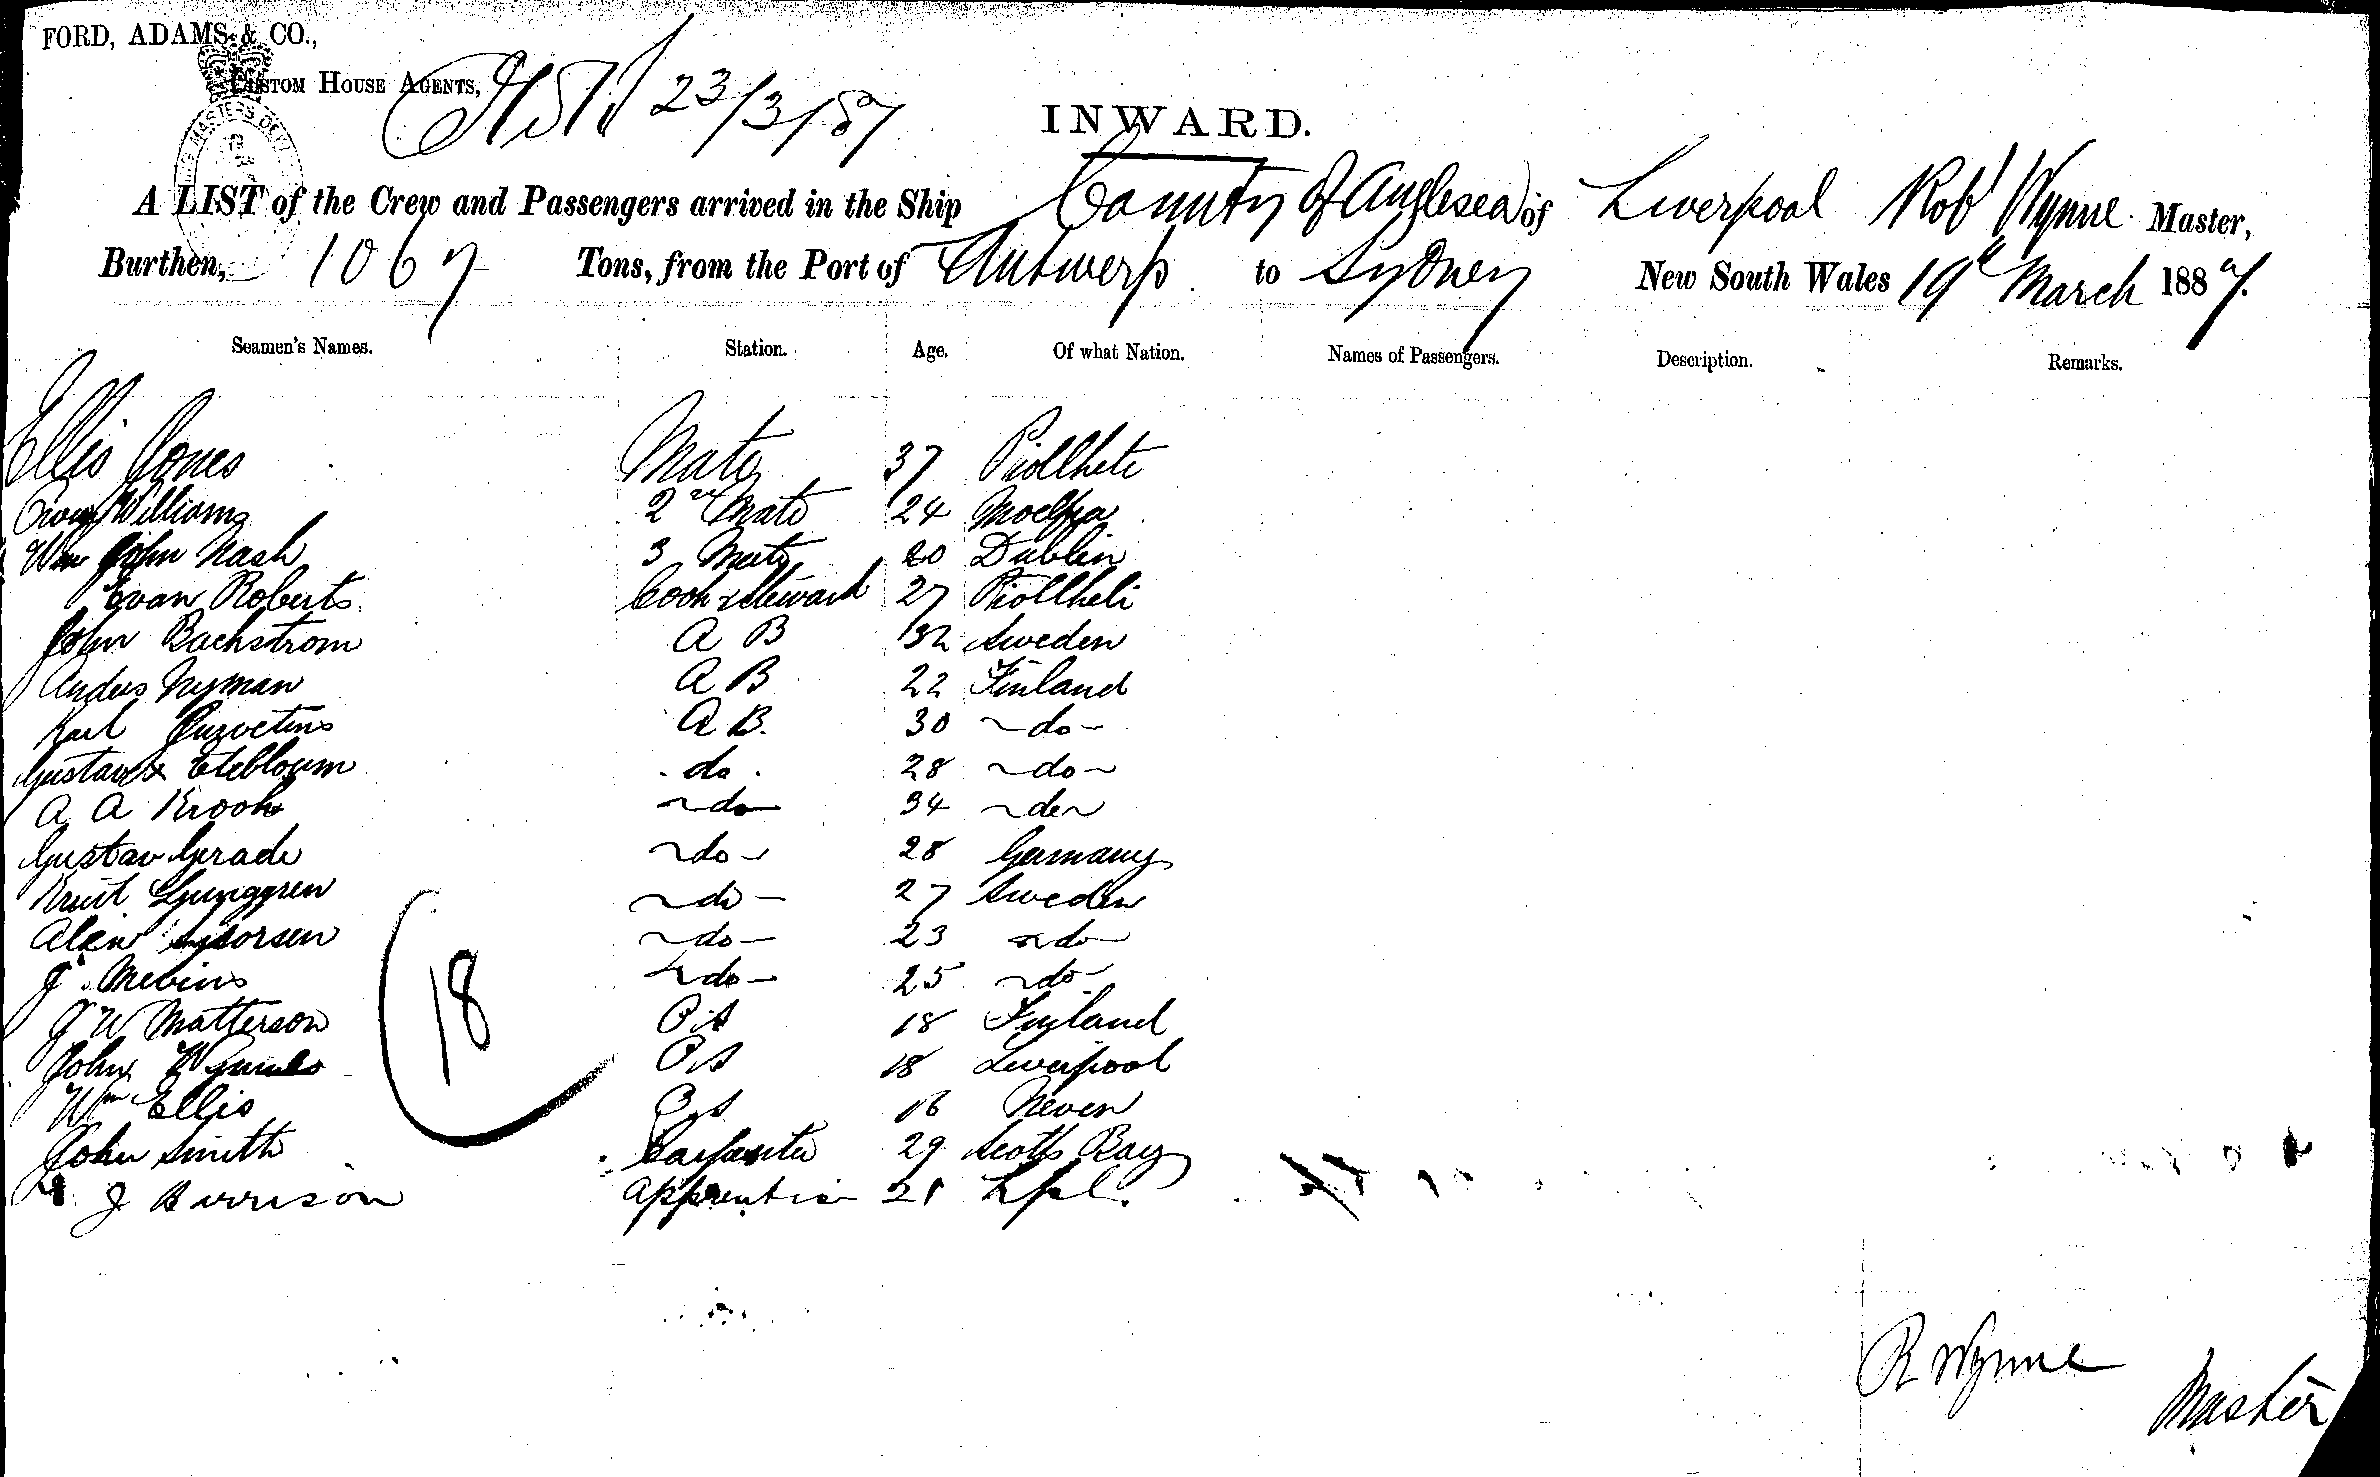 FORD, ADAMS & CO.,
CUSTOM HOUSE AGENTS,
23/3/87
INWARD.
A LIST of the Crew and Passengers arrived in the Ship County of Anglesea of Liverpool Robt Wynne Master,
Burthen, 1067 Tons, from the Port of Antwerp to Sydney New South Wales 19th March 1887.
Seamen's Names. Station. Age. Of what Nation. Names of Passengers. Description. Remarks.
Ellis Jones Mate 37
Owen Williams 2nd Mate 24 Moelfra
Wm John Nash 3 Mate 20 Dublin
Evan Roberts Cook & Steward 27
John Backstrom A B 32 Sweden
Anders Nyman A B 22 Finland
Karl A B. 30 - do -
Gustav do 28 - do -
A A Krook - do - 34 - do -
Gustav Grade - do - 28 Germany
Knut Ljunggren - do - 27 Sweden
- do - 23 - do -
J Mevins - do - 25 - do -
J W Matterson O.S 18 Finland
John O.S 18 Liverpool
Wm Ellis O.S 16 Neven
John Smith Carpenter 29 Scotts Bay
J Harrison Apprentice 21 Lpl.
18
R Wynne
Master